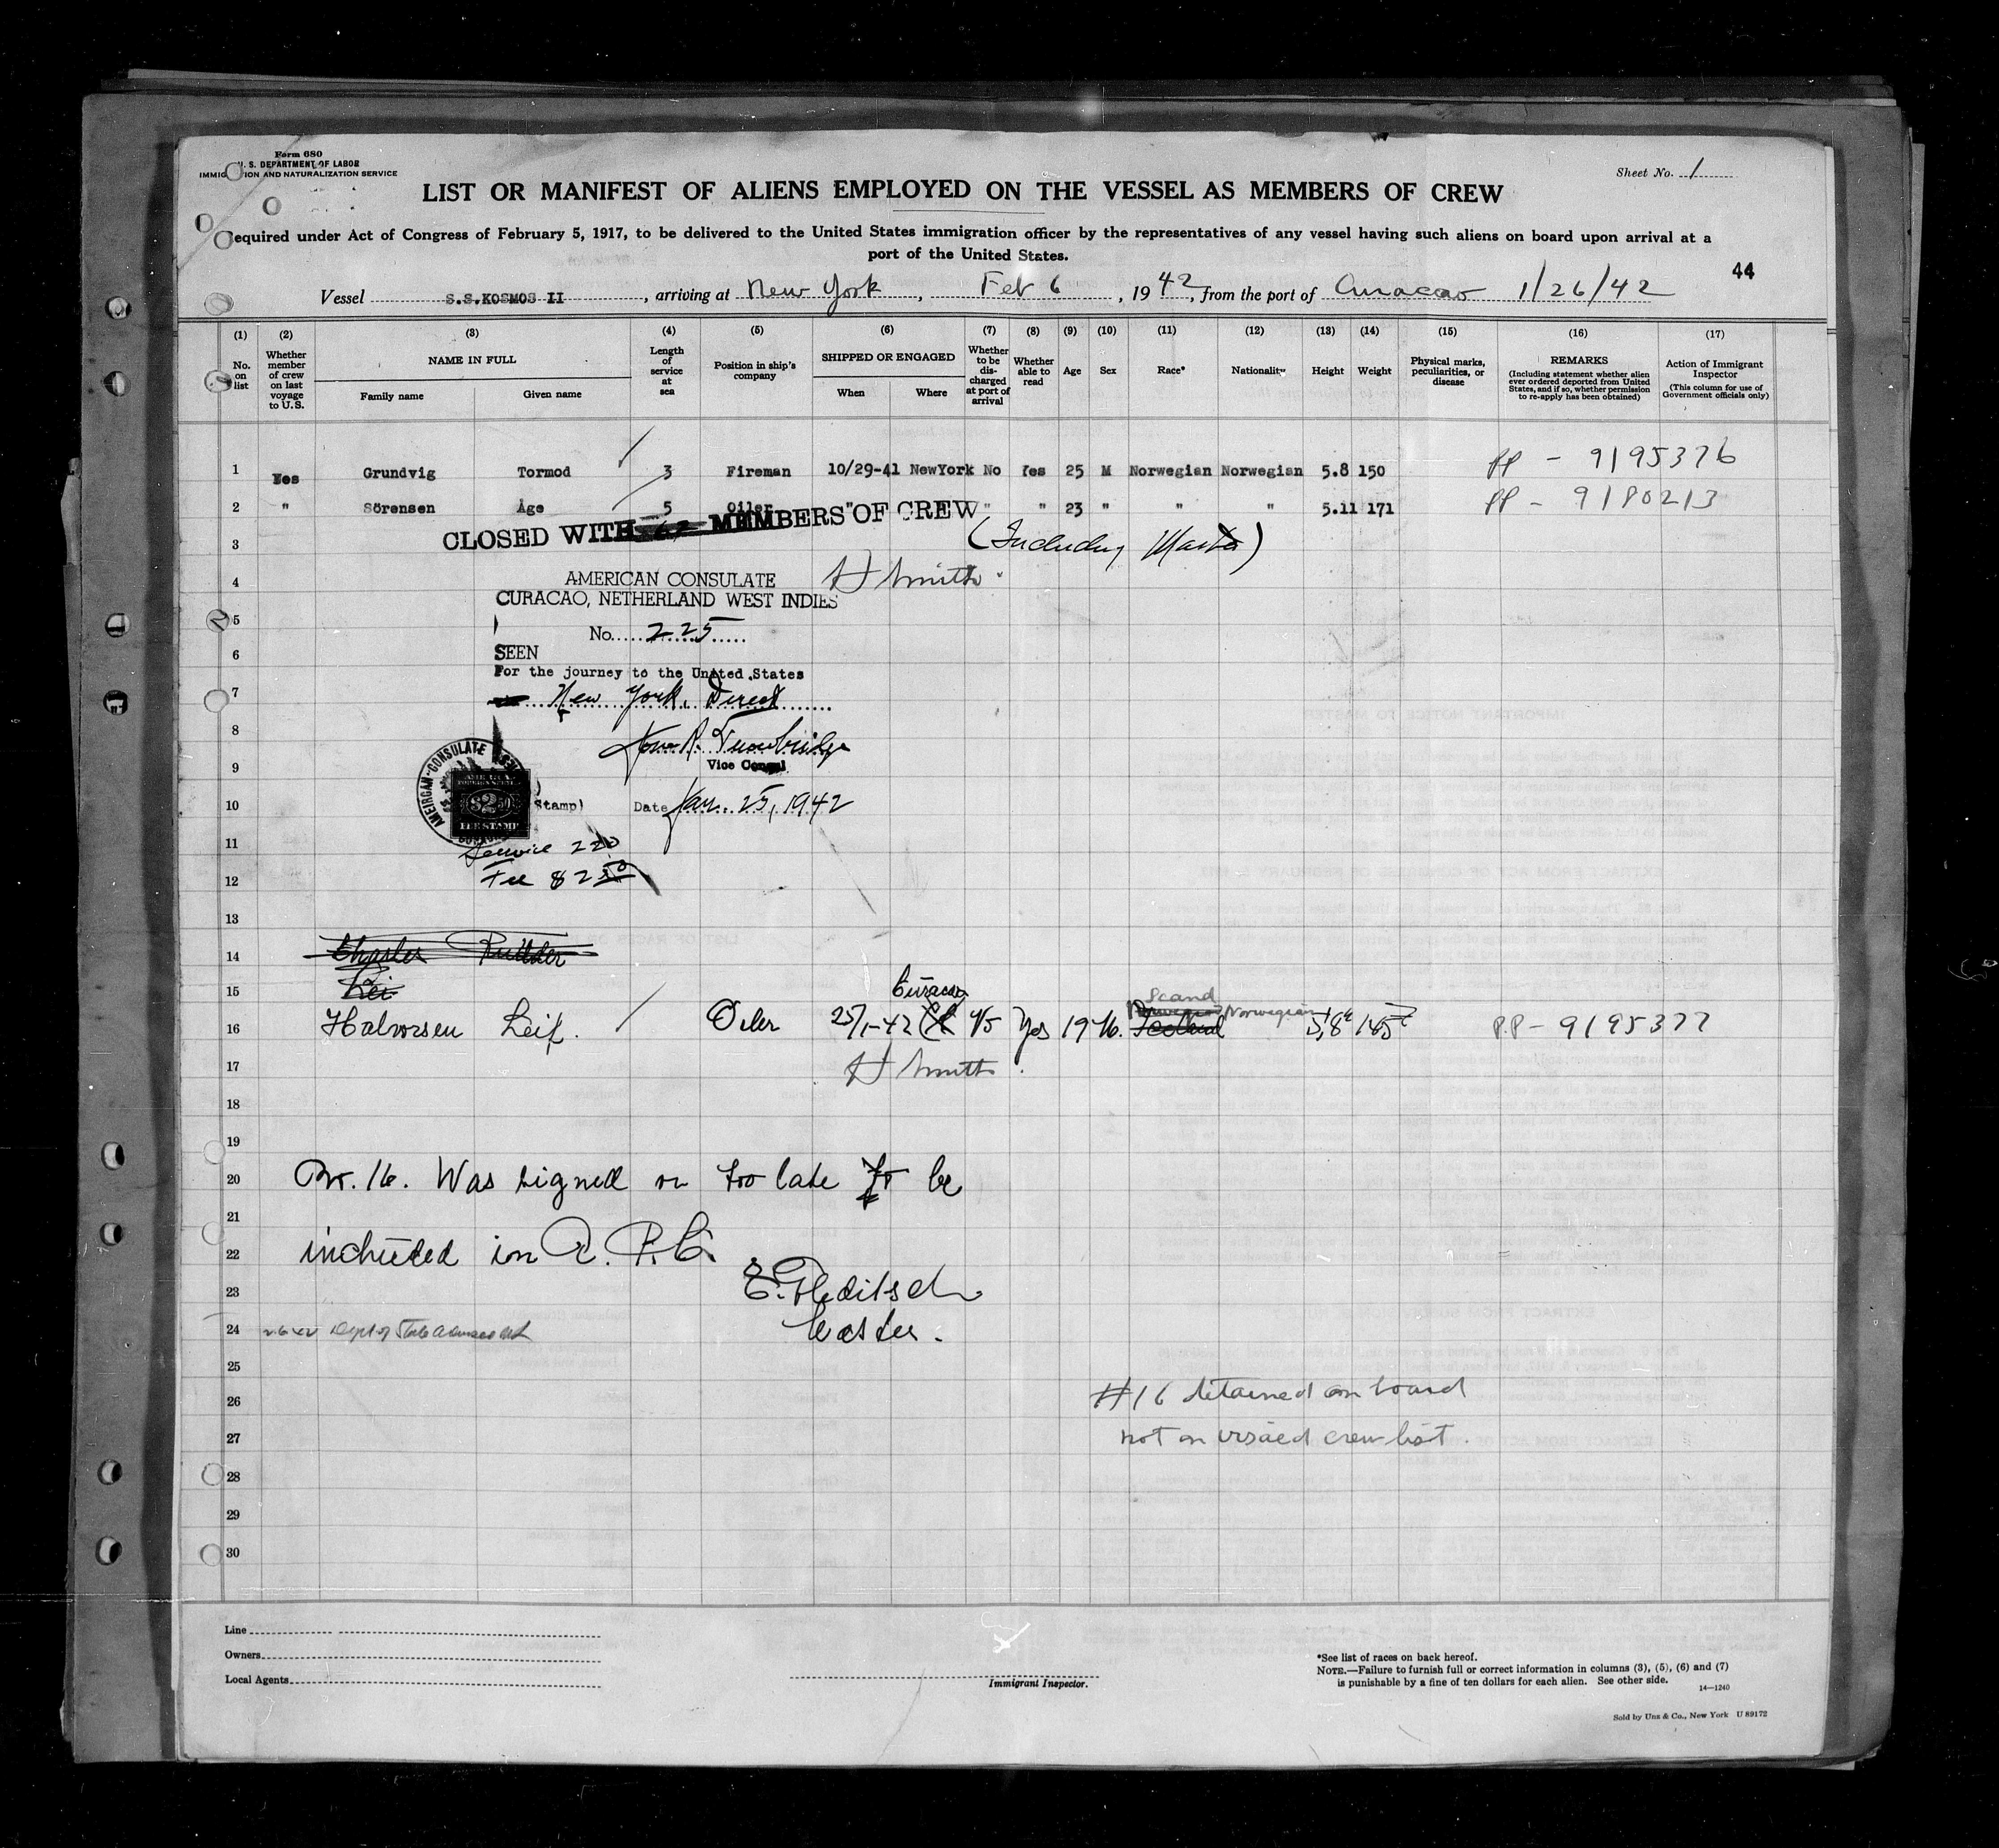 Form 680
U. S. DEPARTMENT OF LABOR
IMMIG ION AND NATURALIZATION SERVICE
Sheet No. 1
LIST OR MANIFEST OF ALIENS EMPLOYED ON THE VESSEL AS MEMBERS OF CREW
equired under Act of Congress of February 5, 1917, to be delivered to the United States immigration officer by the representatives of any vessel having such aliens on board upon arrival at a
port of the United States.
44
Vessel S.S.KOSMOS II, arriving at New York, Feb 6, 1942, from the port of Curacao 1/26/42
(1) (2) (3) (4) (5) (6) (7) (8) (9) (10) (11) (12) (13) (14) (15) (16) (17)
No. on list Whether member of crew on last voyage to U.S. NAME IN FULL Family name Given name Length of service at sea Position in ship's company SHIPPED OR ENGAGED When Where Whether to be discharged at port of arrival Whether able to read Age Sex Race* Nationality Height Weight Physical marks, peculiarities, or disease REMARKS (Including statement whether alien ever ordered deported from United States, and if so, whether permission to re-apply has been obtained) Action of Immigrant Inspector (This column for use of Government officials only)
1 Yes Grundvig Tormod 3 Fireman 10/29-41 NewYork No Yes 25 M Norwegian Norwegian 5.8 150 PP - 9195376
2 " Sörensen Åge 5 Oiler " " " " 23 " " " 5.11 171 PP - 9180213
CLOSED WITH MEMBERS OF CREW
3 (Including Master)
4 AMERICAN CONSULATE H Smith
CURACAO, NETHERLAND WEST INDIES
5 No. 225
6 SEEN
For the journey to the United States
7 New York, Direct
8
9 Vice Consul
AMERICAN CONSULATE
$2.50
FEE STAMP
10 Stamp) Date Jan. 25, 1942
11 Service 220
12 Fee $2.50
13
14 Charles
15 Lei Curacao
Scand
16 Halvorsen Leif. Oiler 25/1-42 No Yes 19 M. Norwegian 5,8 145 P.P - 9195377
17 H Smith
18
19
20 Nr. 16. Was signed on too late to be
21
22 included in A. P. C.
23
24 Dept of State Master.
25
26 #16 detained on board
27 not on visaed crew list.
28
29
30
Line
Owners
Local Agents
Immigrant Inspector.
*See list of races on back hereof.
NOTE.—Failure to furnish full or correct information in columns (3), (5), (6) and (7)
is punishable by a fine of ten dollars for each alien. See other side.
14—1240
Sold by Unz & Co., New York U 89172